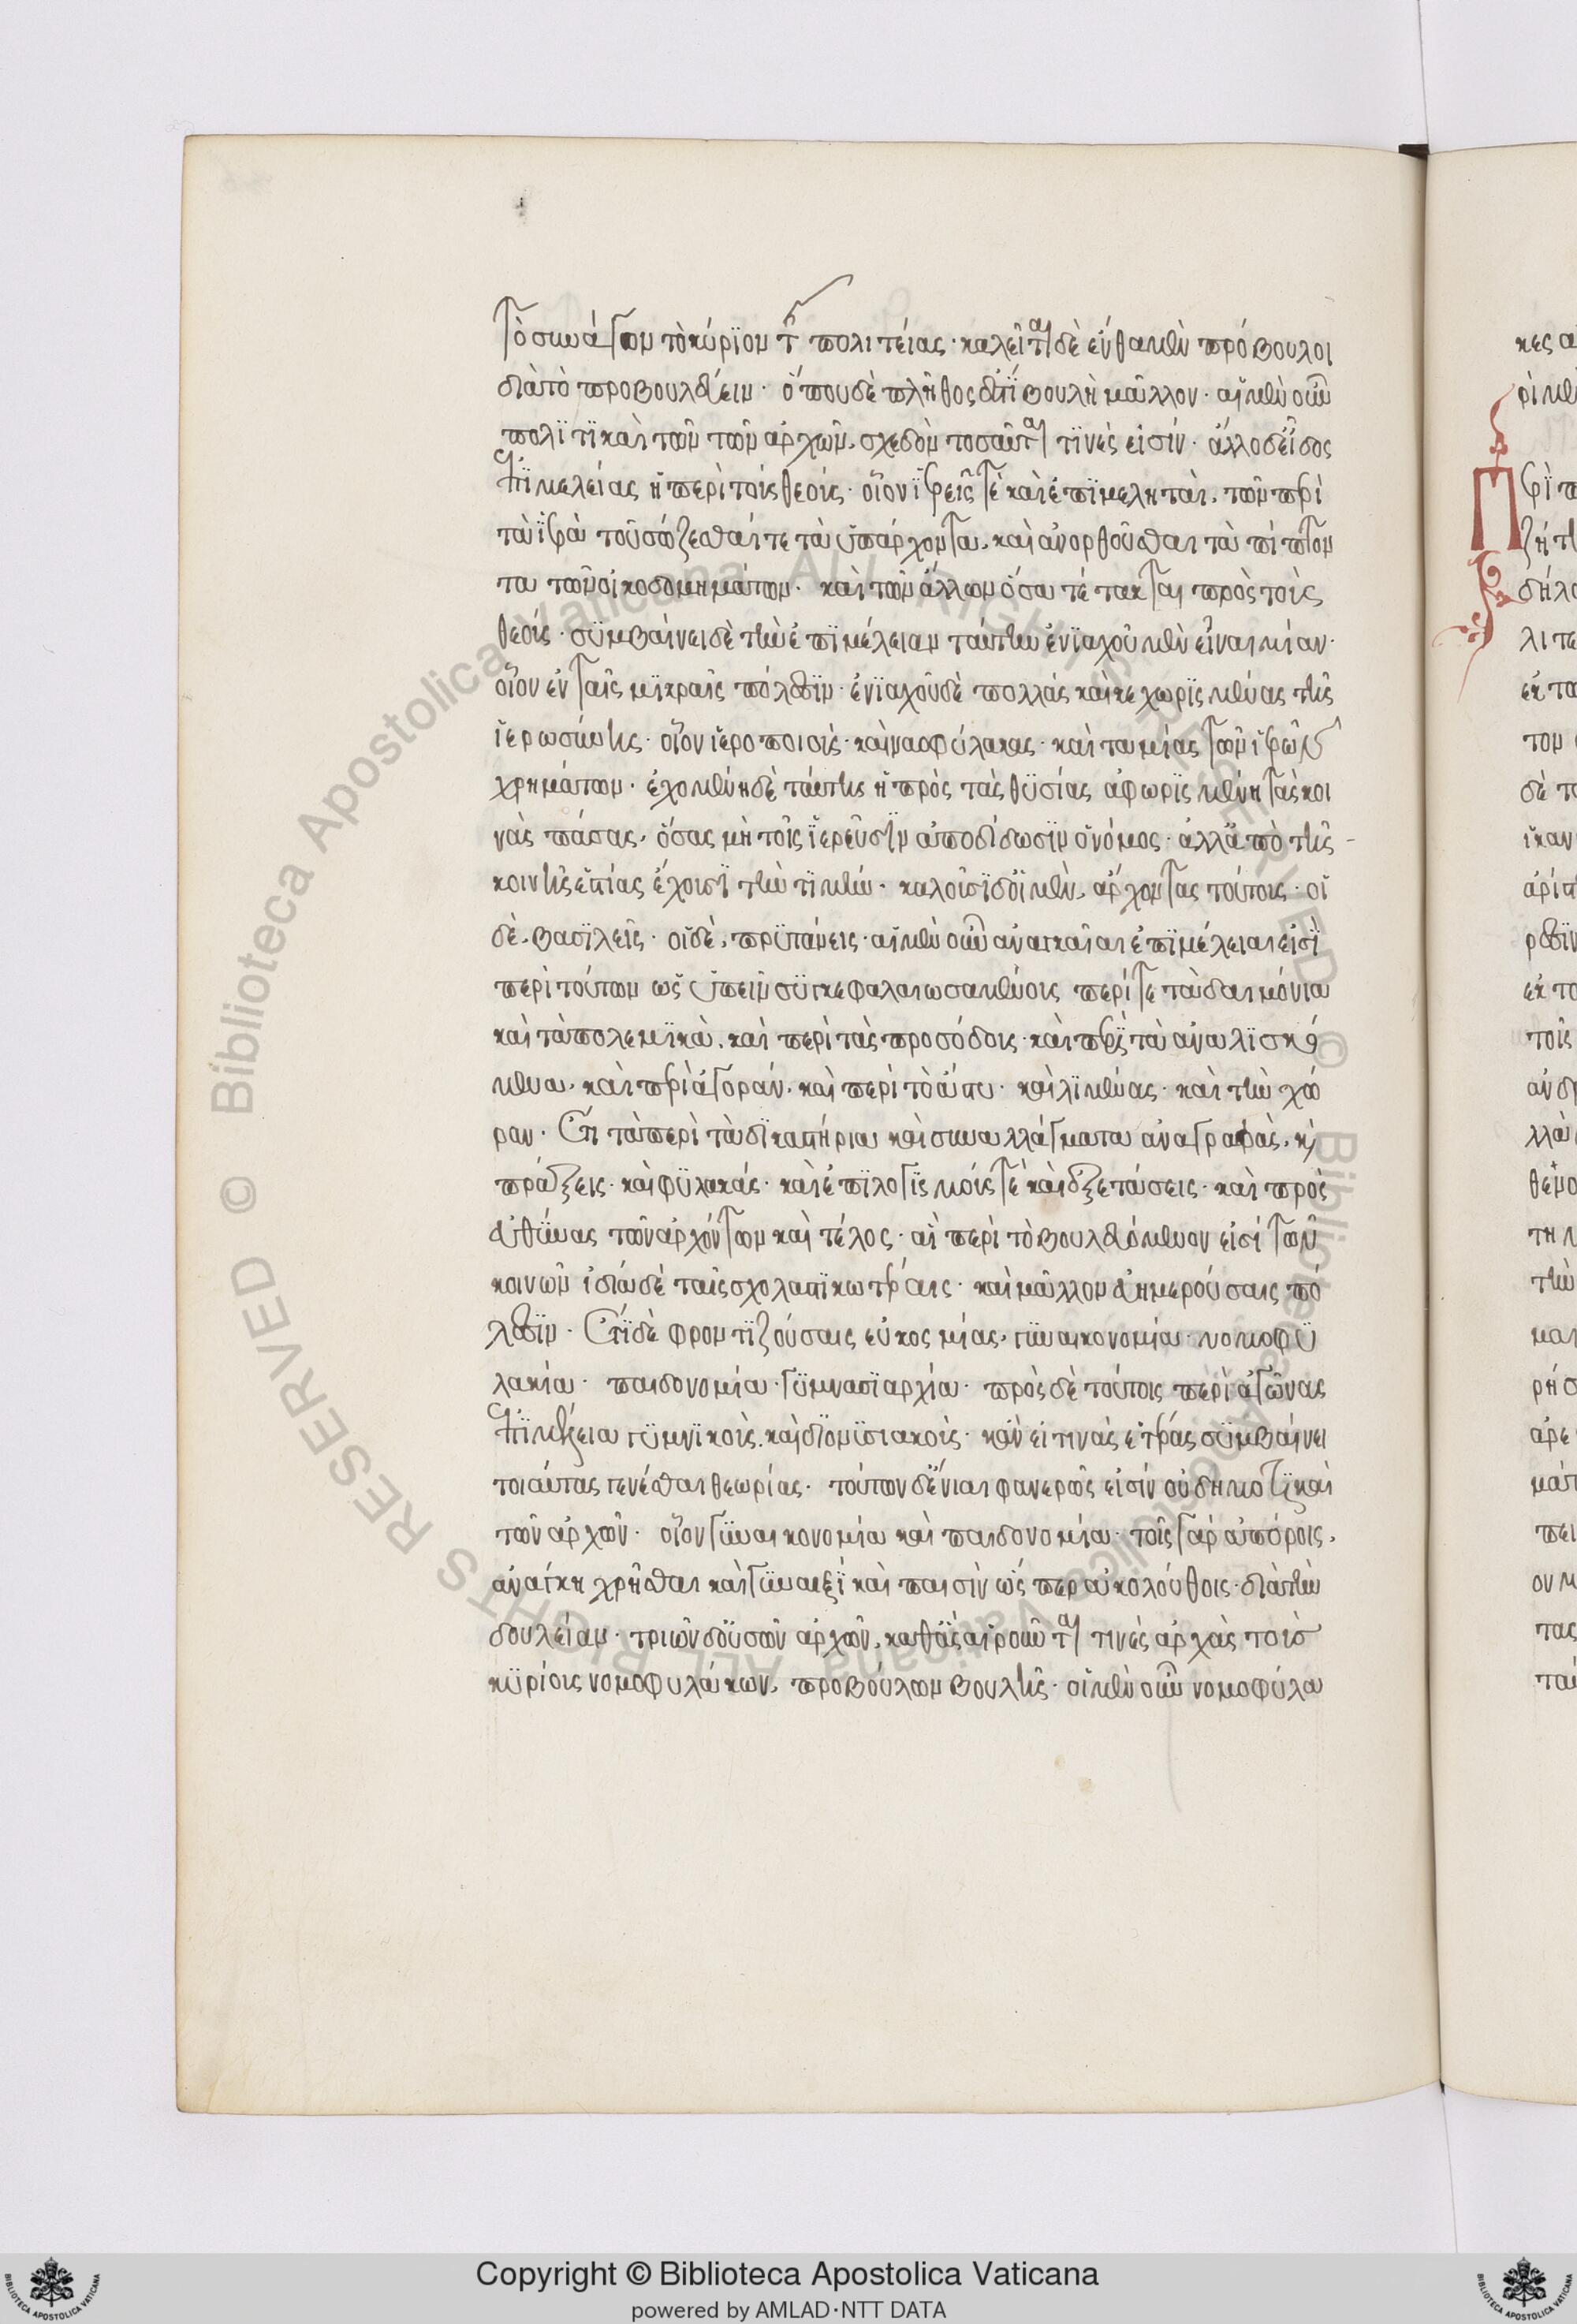 τὸ συνάγον τὸ κύριον τῆς πολιτείας· καλεῖται δὲ ἔνθα μὲν πρόβουλοι
διὰ τὸ προβουλεύειν· ὅπου δὲ πλῆθός ἐστι βουλὴ μᾶλλον· αἱ μὲν οὖν
πολιτικαὶ τῶν ἀρχῶν, σχεδὸν τοσαῦται τινές εἰσίν· ἄλλο δ' εἶδος
ἐπιμελείας ἡ περὶ τοὺς θεούς· οἷον ἱερεῖς τὲ καὶ ἐπιμεληταὶ, τῶν περὶ
τὰ ἱερὰ τοῦ σώζεσθαί τε τὰ ὑπάρχοντα, καὶ ἀνορθοῦσθαι τὰ πίπτον
τα τῶν οἰκοδομημάτων· καὶ τῶν ἄλλων ὅσα τέτακται πρὸς τοὺς
θεούς· συμβαίνει δὲ τὴν ἐπιμέλειαν ταύτην ἐνιαχοῦ μὲν εἶναι μίαν·
οἷον ἐν ταῖς μικραῖς πόλεσιν· ἐνιαχοῦ δὲ πολλὰς καὶ κεχωρισμένας τῆς
ἱερωσύνης· οἷον ἱεροποιοὺς· καὶ ναοφύλακας· καὶ ταμίας τῶν ἱερῶν
χρημάτων· ἐχομένη δὲ ταύτης ἡ πρὸς τὰς θυσίας ἀφωρισμένη τὰς κοι
νὰς πάσας, ὅσας μὴ τοῖς ἱερεῦσιν ἀποδίδωσιν ὁ νόμος· ἀλλ' ἀπὸ τῆς
κοινῆς ἑστίας ἔχουσι τὴν τιμήν· καλοῦσι δ' οἱ μὲν, ἄρχοντας τούτους· οἱ
δὲ, βασιλεῖς· οἱ δὲ, πρυτάνεις· αἱ μὲν οὖν ἀναγκαῖαι ἐπιμέλειαι εἰσὶ
περὶ τούτων ὡς εἰπεῖν συγκεφαλαιωσαμένους περί τε τὰ δαιμόνια
καὶ τὰ πολεμικὰ, καὶ περὶ τὰς προσόδους· καὶ περὶ τὰ ἀναλισκό
μενα, καὶ περὶ ἀγορὰν, καὶ περὶ τὸ ἄστυ· καὶ λιμένας· καὶ τὴν χώ
ραν· ἔτι τὰ περὶ τὰ δικαστήρια καὶ συναλλάγματα ἀναγραφὰς, καὶ
πράξεις· καὶ φυλακάς· καὶ ἐπιλογισμούς τὲ καὶ ἐξετάσεις· καὶ πρὸς
εὐθύνας τῶν ἀρχόντων καὶ τέλος· αἱ περὶ τὸ βουλευόμενον εἰσί τῶν
κοινῶν ἰδίᾳ δὲ ταῖς σχολαστικωτέραις· καὶ μᾶλλον εὐημερούσαις πό
λεσιν· ἔτι δὲ φροντιζούσαις εὐκοσμίας, γυναικονομία· νομοφυ
λακία· παιδονομία· γυμνασιαρχία· πρὸς δὲ τούτοις περὶ ἀγῶνας
ἐπιμέλεια γυμνικοὺς. καὶ διονυσιακοὺς· κἂν εἴ τινας ἑτέρας συμβαίνει
τοιαύτας γενέσθαι θεωρίας· τούτων δ' ἔνιαι φανερῶς εἰσίν οὐ δημοτικαὶ
τῶν ἀρχῶν· οἷον γυναικονομία καὶ παιδονομία· τοῖς γὰρ ἀπόροις,
ἀνάγκη χρῆσθαι καὶ γυναιξὶ καὶ παισὶν ὥσπερ ἀκολούθοις· διὰ τὴν
δουλείαν· τριῶν δ' οὐσῶν ἀρχῶν, καθ' ἃς αἱροῦνται τινὲς ἀρχὰς τοὺς
κυρίους νομοφυλάκων, προβούλων βουλῆς· οἱ μὲν οὖν νομοφύλα